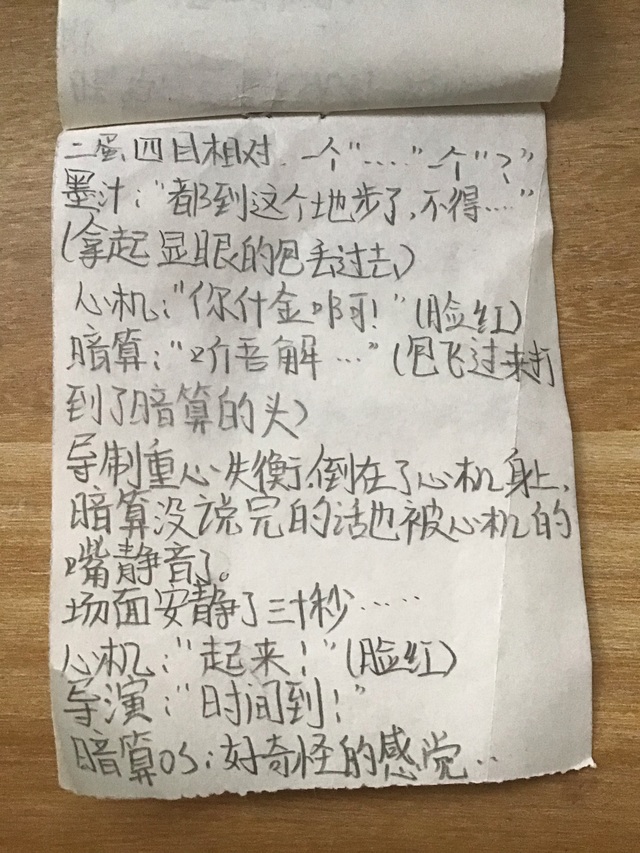 二蛋,四目相对.一个"……"一个"?"
墨汁:"都到这个地步了,不得……"
(拿起显眼的包丢过去)
心机:"你什金啊!"(脸红)
暗算:"听吾解…"(包飞过来打
到了暗算的头)
导制重心失衡,倒在了心机身上,
暗算没说完的话也被心机的
嘴静音了。
场面安静了三十秒……
心机:"起来!"(脸红)
导演:"时间到!"
暗算OS:好奇怪的感觉…